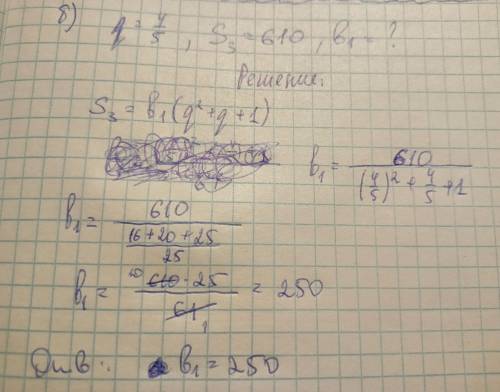 б) q = 4/5, S₃ = 610, b₁ = ?
Решение:
S₃ = b₁(q² + q + 1)
b₁ = 610 / ((4/5)² + 4/5 + 1)
b₁ = 610 / ((16 + 20 + 25)/25)
b₁ = 610 · 25 / 61 = 250
10
1
Отв.: b₁ = 250